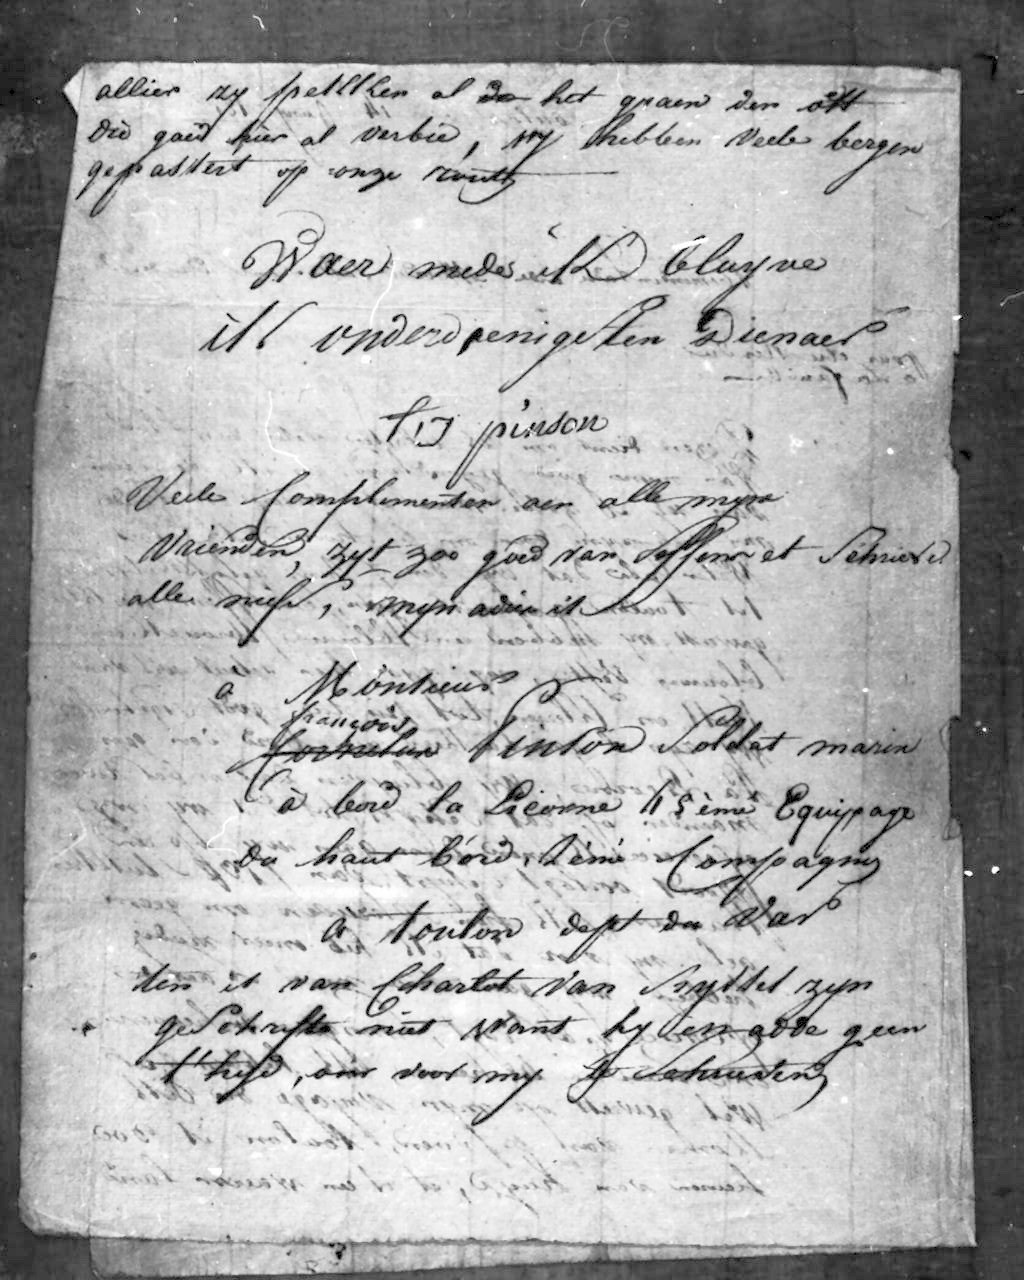 allier zy al het graen den
die goed hier al verbie, wy hebben veele bergen
gepassert op onze route
Waer mede ik blayve
ik onderdenigesten Dienaer
pinson
Veele Complimenten aen alle myne
vrienden, zyt zoo goed van
alle myn adres it
a Monsieur
françois
Cornelis Pinson Soldat marin
à bord la Licorne 45éme Equipage
du haut bord, 2émé Compagny
a toulon dept du Var
van Charlot Van zyn
geschrifte niet want hy en adde geen
, om voor my te Schrieven